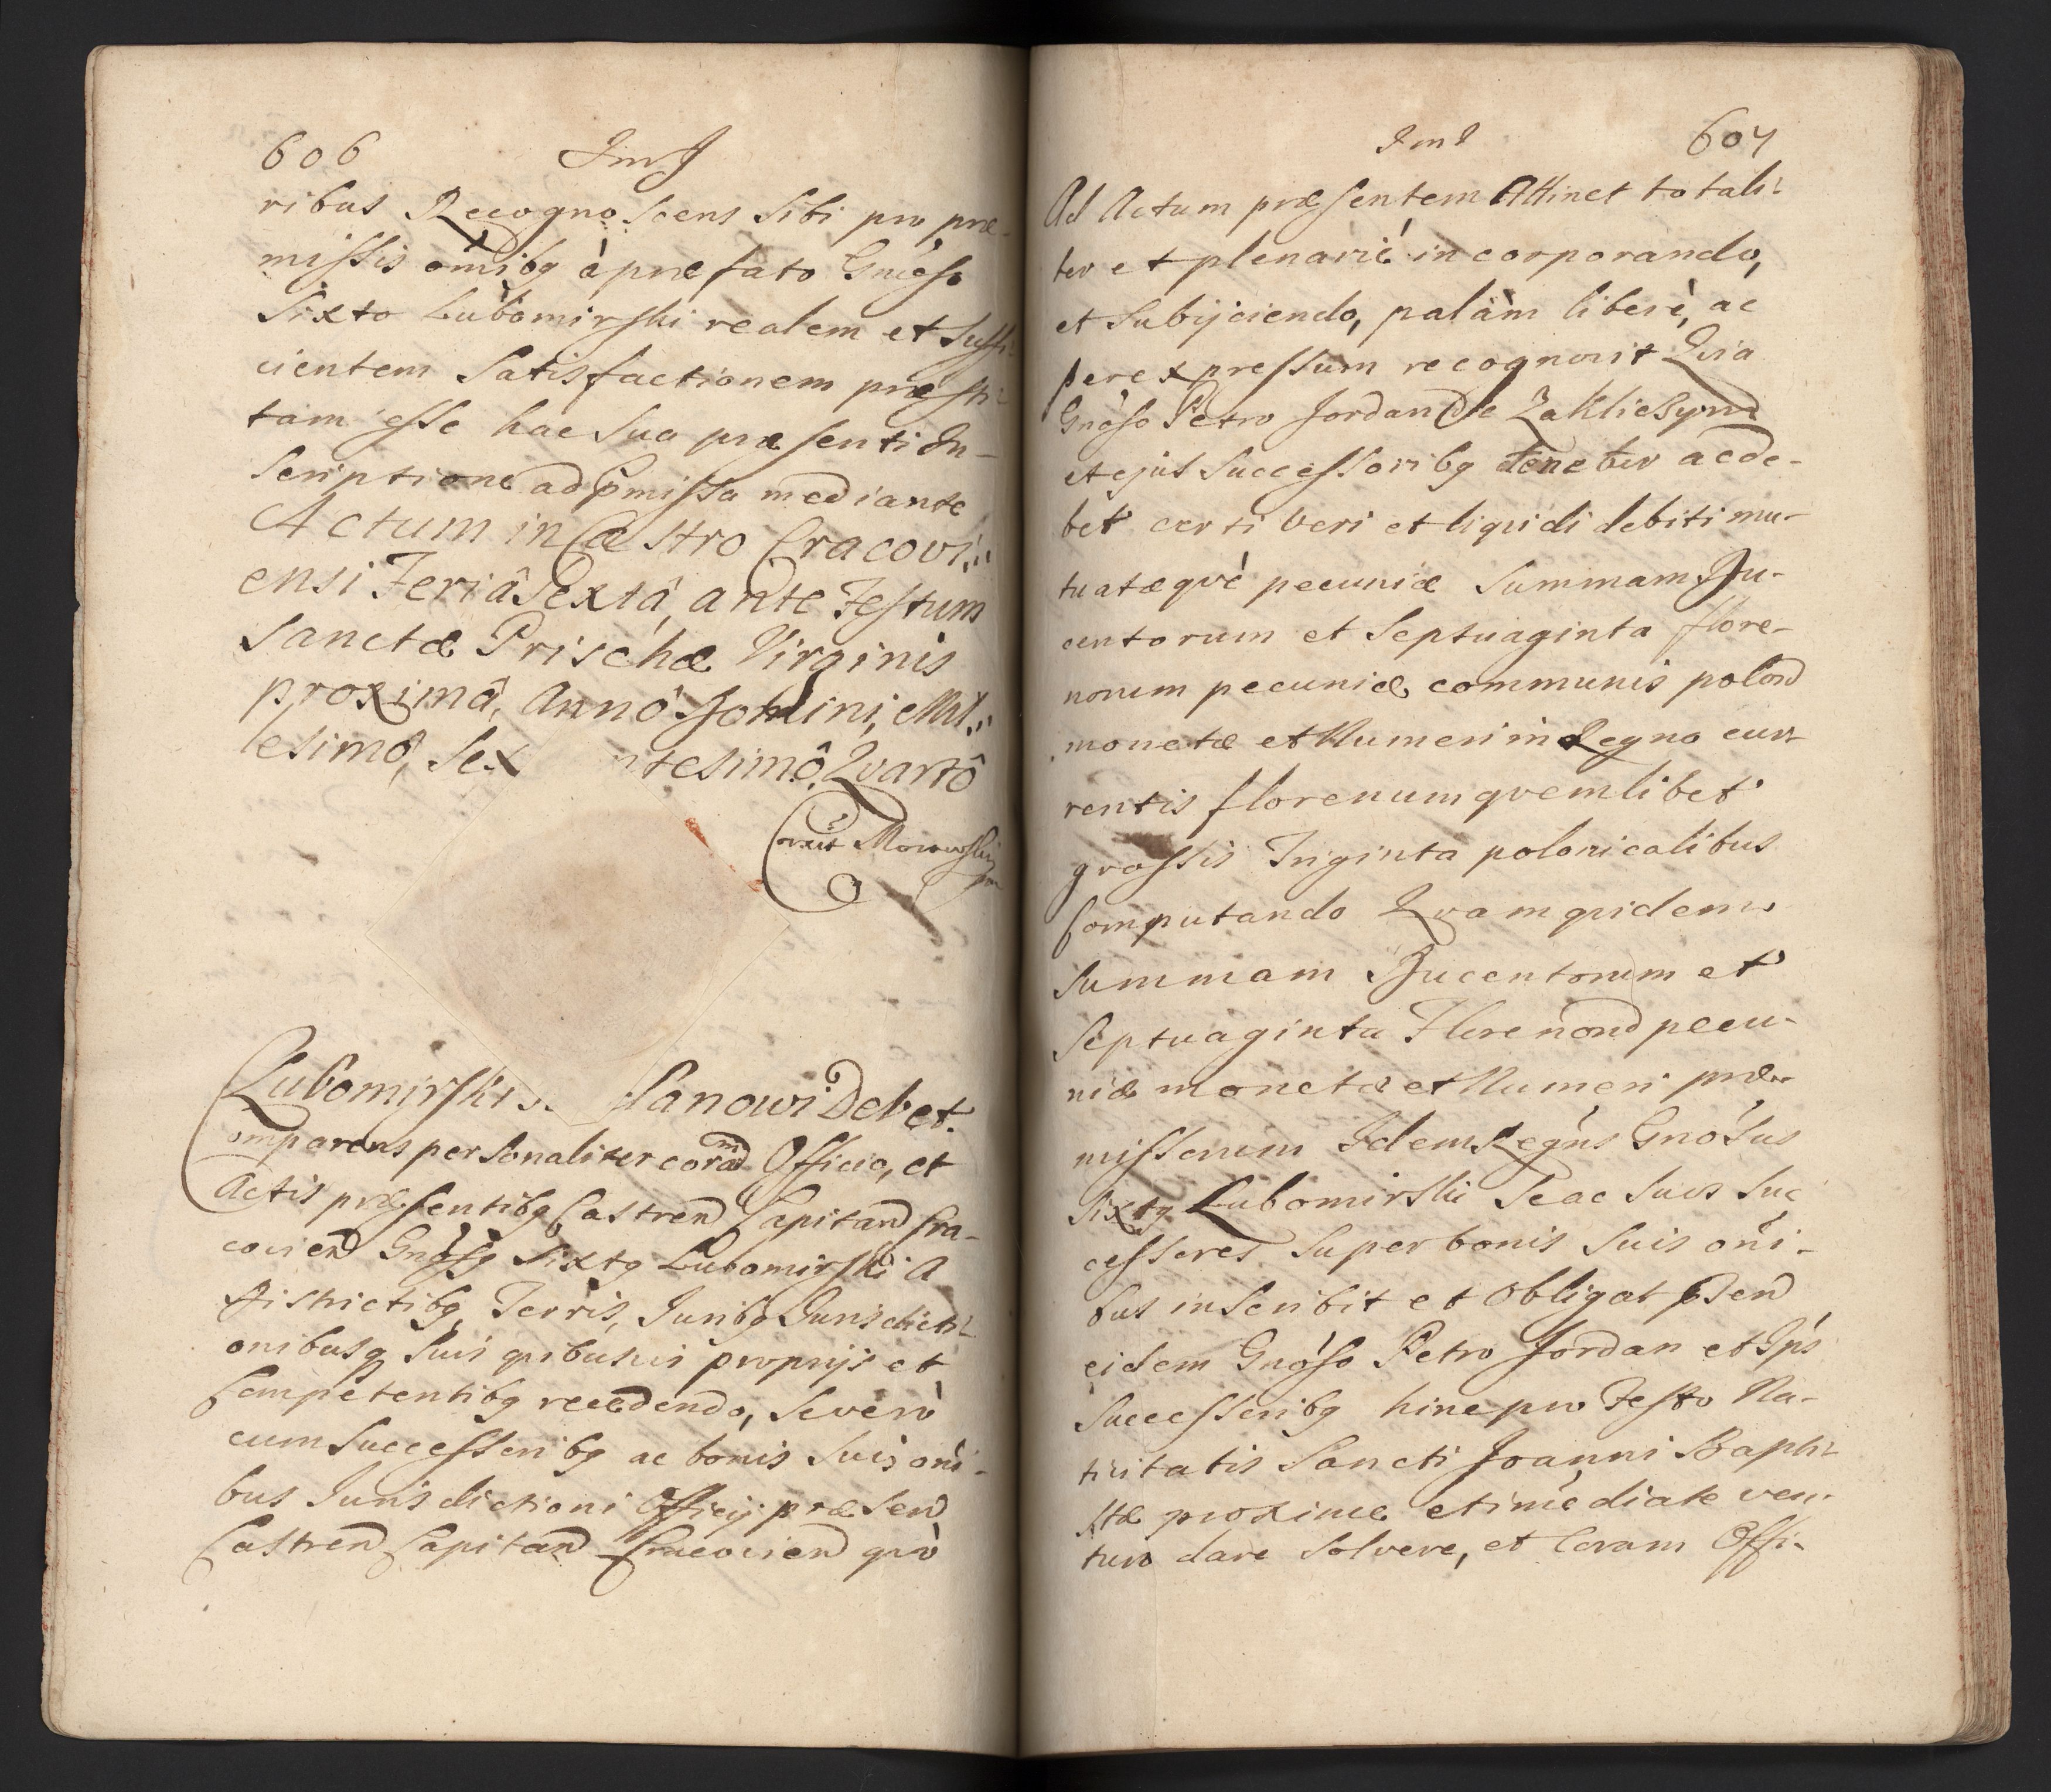 606 ImJ
ribus Recognoscens Sibi pro præ-
missis om̃ibq à præfato Gnoso
Sixto Lubomirski realem et suffi-
cientem Satisfactionem præsti-
tam esse hac Sua præsenti In-
scriptione ad p̃missa mediante
Actum in Castro Cracovi-
ensi Feriâ Sextâ, ante Festum
Sanctæ Prischæ Virginis
proximâ, Annô Domini, Mil-
lesimô, Sex ntesimô, Qvartô
Lubomirski Janowi Debet.
Comparens personaliter coram Officio, et
Actis præsentibq Castren Capitan Cra-
covien Gnosq Sixtq Lubomirski A
Districtibq, Terris, Juribq Jurisdicti-
onibusq Suis qvibusvis proprijs et
Competentibq recedendo, Severò
cum Successoribq ac bonis Suis om̃i-
bus Jurisdictioni Officij præsen
Castren Capitan Cracovien qvò
ImJ 607
Ad Actum præsentem Attinet totali-
ter et plenariè incorporando,
et Subijciendo, palàm liberè, ac
per expressum recognovit Qvia
Gnoso Petro Jordan De Zakliczyn
et ejus Successoribq tenetur ac de-
bet certi veri et liqvidi debiti mu-
tuatæqvè pecuniæ Summam Du-
centorum et Septuaginta flore-
norum pecuniæ communis polon
monetæ et Numeri in Regno cur-
rentis florenum qvemlibet
grossis Triginta polonicalibus
Computando Qvam qvidem
Summam Ducentorum et
Septuaginta Florenon pecu-
niæ monetæ et Numeri præ-
missorum Idem Regńs Gnosus
Sixtq Lubomirski Se ac Suos Suc
cessores Super bonis Suis om̃i-
bus inscribit et Obligat p̃sen
eidem Gnoso Petro Jordan et Ips
Successoribq hinc pro Festo Na-
tivitatis Sancti Joanni Bapti-
stæ proximæ et im̃ediate ven-
turo dare solvere, et Coram Offi-